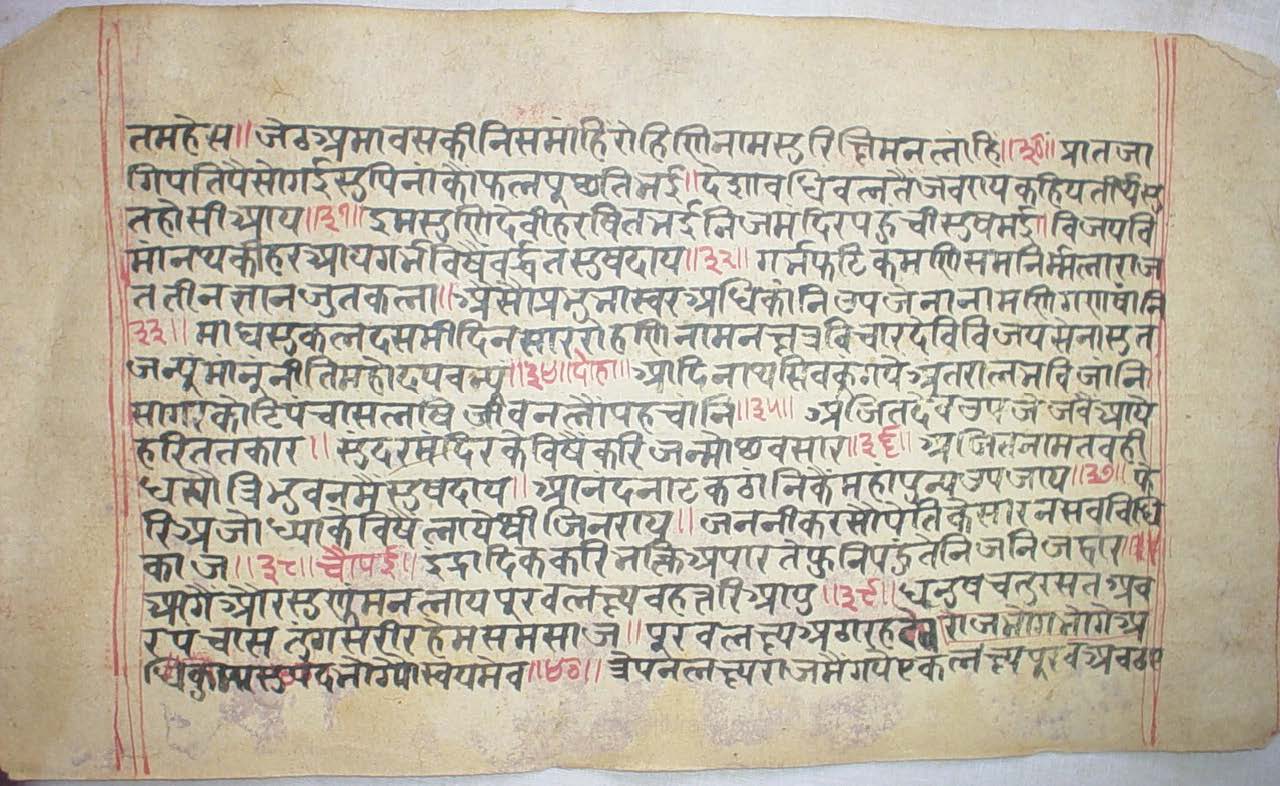 तमहेस॥ जेठअमावसकीनिसमांहि रोहिणिनामसुरिछिमनलांहि॥३०॥ प्रातजा
गिपतिपैसोगईसुपिनांकौफलपूछतिभई॥ देशावधिबलतैजबरायकहियतीर्थसु
तहोसीआय॥३१॥ इमसुणिदेवीहरषितभईनिजमंदिरपहुचीसुषमई॥ विजयवि
मांनथकीहरआयगर्भविषैवर्द्धतसुषदाय॥३२॥ गर्भफटिकमणिसमनिर्म्मलाराज
ततीनज्ञानजुतकला॥ असौप्रभुभास्वरअधिकांनिउपजेनानामणिगणषांनि
३३॥ माघसुकलदसमीदिनसाररोहणिनामनछत्रविचारदेविविजयसेनासुत
जन्मुमांनुंनीतिमहोदय ॥३४॥दोहा॥ आदिनाथसिवकूंगयेअंतरालभविजांनि
सागरकोटिपंचासलाषि जीवनलौंपहचांनि॥३५॥ अजितदेवउपजेजबैआये
हरिततकार॥ सुंदरमंदिरकेविषैकरिजन्मोछवसार॥३६॥ अजितनामतबही
धस्यौत्रिभुवनमैसुषदाय॥ आनंदनाटकठांनिकैंमहांपुन्यउपजाय॥३७॥ फे
रिअजोध्याकेविषैल्यायेश्रीजिनराय॥ जननीकरसोंपतिकेसारनसवविधि
काज॥३८॥चौपई॥ इंद्रादिककरिभक्तिअपारतेफुनिपंहुतेनिजनिजद्वार
आगैऔरसुणुंमनलायपूरवलछ्यबहतरिआयु॥३९॥ धनुषचतुरसतअव
रपचासतुंगसरीरहेमसमसाज॥ पूरवलछ्यअठारह राजभोगभोगेअ
धि ॥४०॥ त्रेपनलछ्यराजमैंगयेएकलछ्यपूरवअवठए